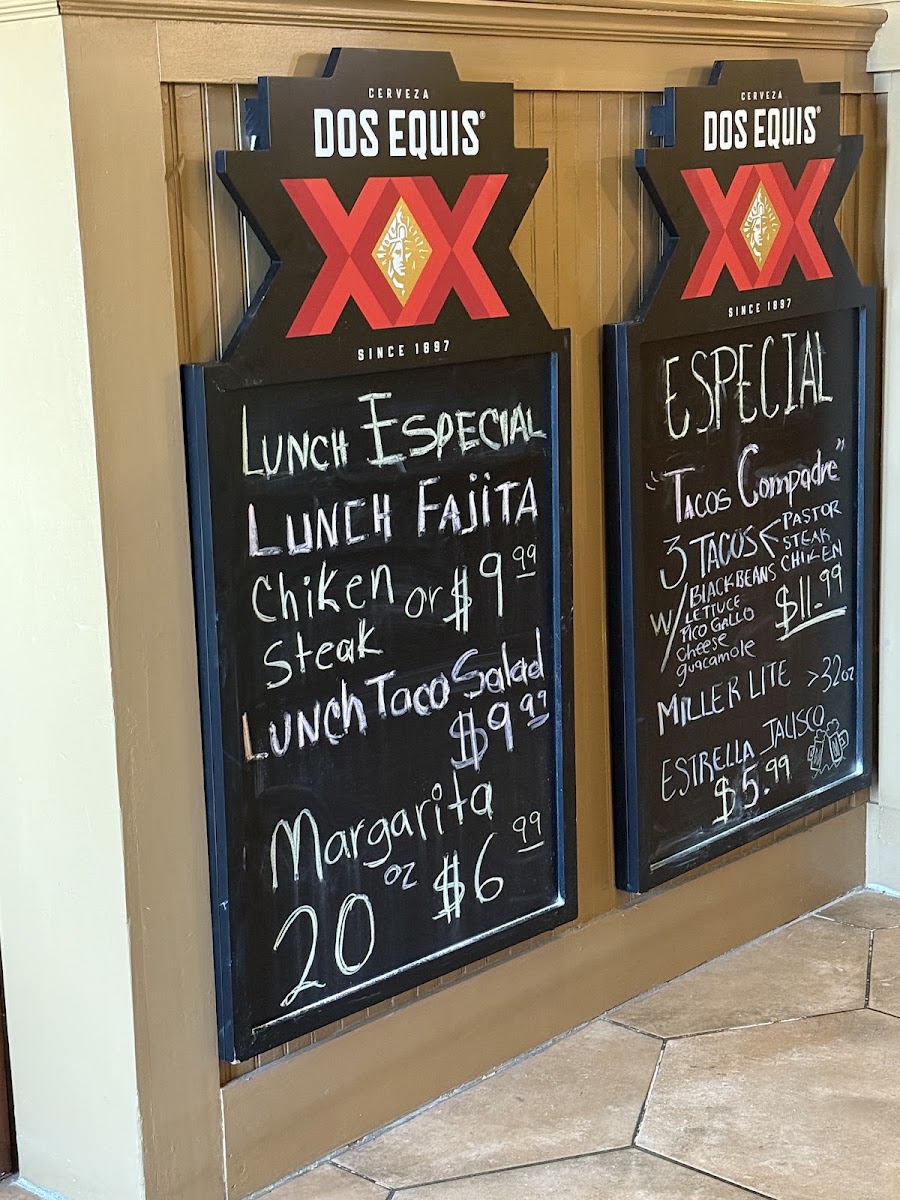 CERVEZA
DOS EQUIS®
XX
SINCE 1897
LUNCH ESPECIAL
LUNCH FAJITA
Chiken or $9.99
Steak
LUNCh TACO Salad
$9.99
Margarita
20 oz $6.99
CERVEZA
DOS EQUIS®
XX
SINCE 1897
ESPECIAL
"Tacos Compadre"
3 TACOS < PASTOR
STEAK
CHIKEN
W/ BLACK BEANS
LETTUCE
PICO GALLO
Cheese
guacamole
$11.99
MILLER LITE >32oz
ESTRELLA JALISCO
$5.99